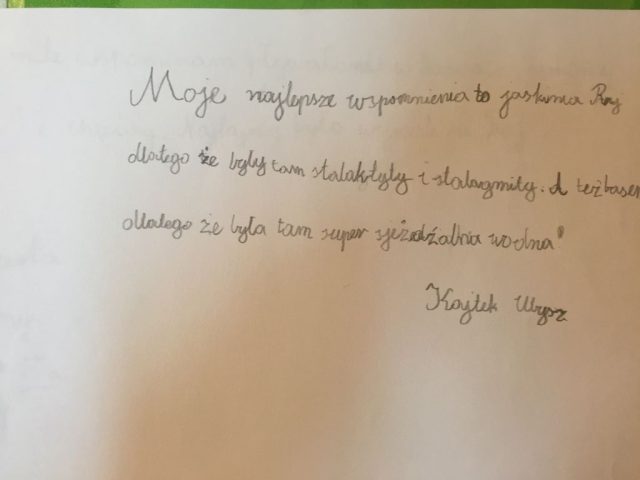 Moje najlepsze wspomnienia to jaskinia Raj
dlatego że były tam stalaktyty i stalagmity. A też basen
dlatego że była tam super sjeżdżalnia wodna
Kajtek